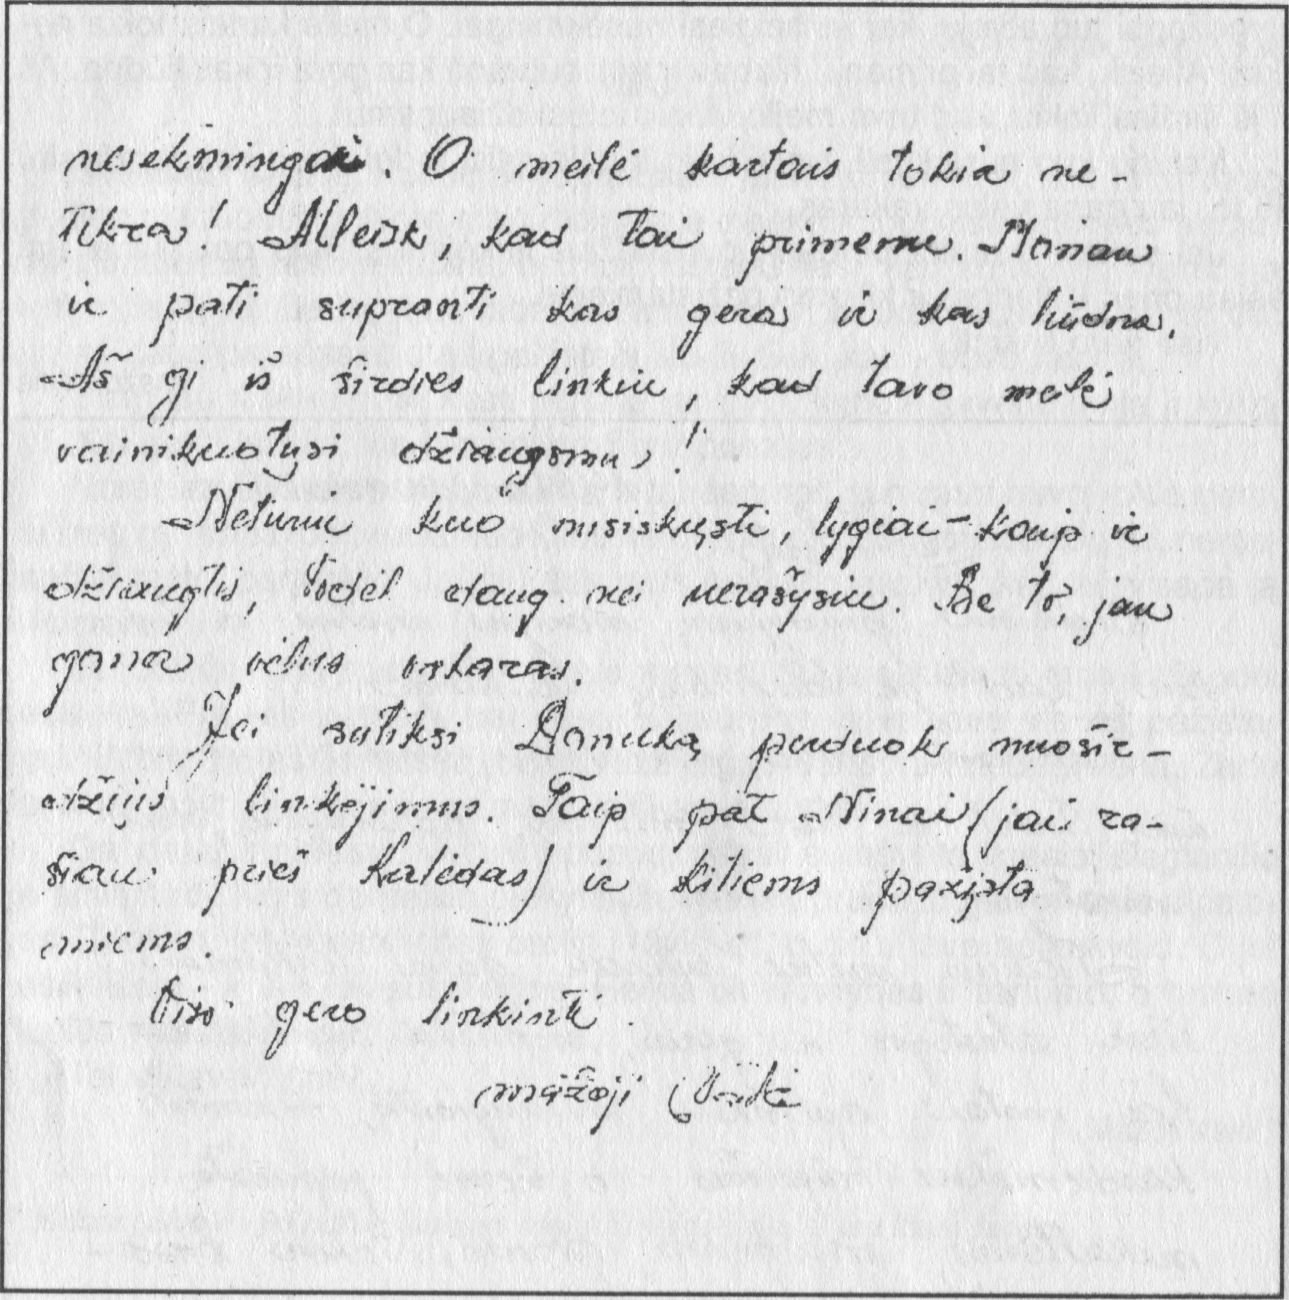 nesėkmingai. O meilė kartais tokia ne-
tikra! Atleisk, kad tai primenu. Manau
ir pati supranti kas gera ir kas liūdna.
Aš gi iš širdies linkiu, kad tavo meilė
vainikuotųsi džiaugsmu!
Neturiu kuo nusiskųsti, lygiai kaip ir
džiaugtis, todėl daug nei nerašysiu. Be to, jau
gana vėlus vakaras.
Jei sutiksi Danutką perduok nuošir-
džius linkėjimus. Taip pat Ninai (jai ra-
šiau prieš Kalėdas) ir kitiems pažįsta
miems.
Viso gero linkinti
mažoji